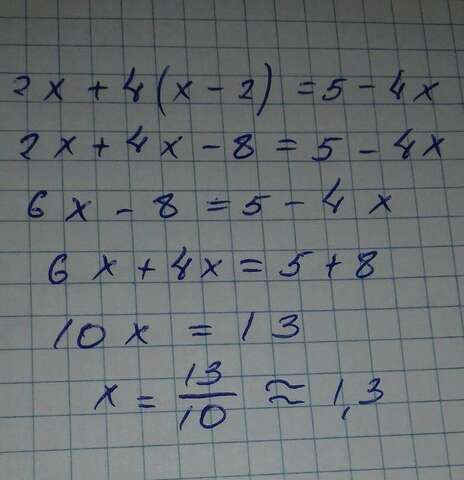 2x + 4(x - 2) = 5 - 4x
2x + 4x - 8 = 5 - 4x
6x - 8 = 5 - 4x
6x + 4x = 5 + 8
10x = 13
x = 13/10 ≈ 1,3